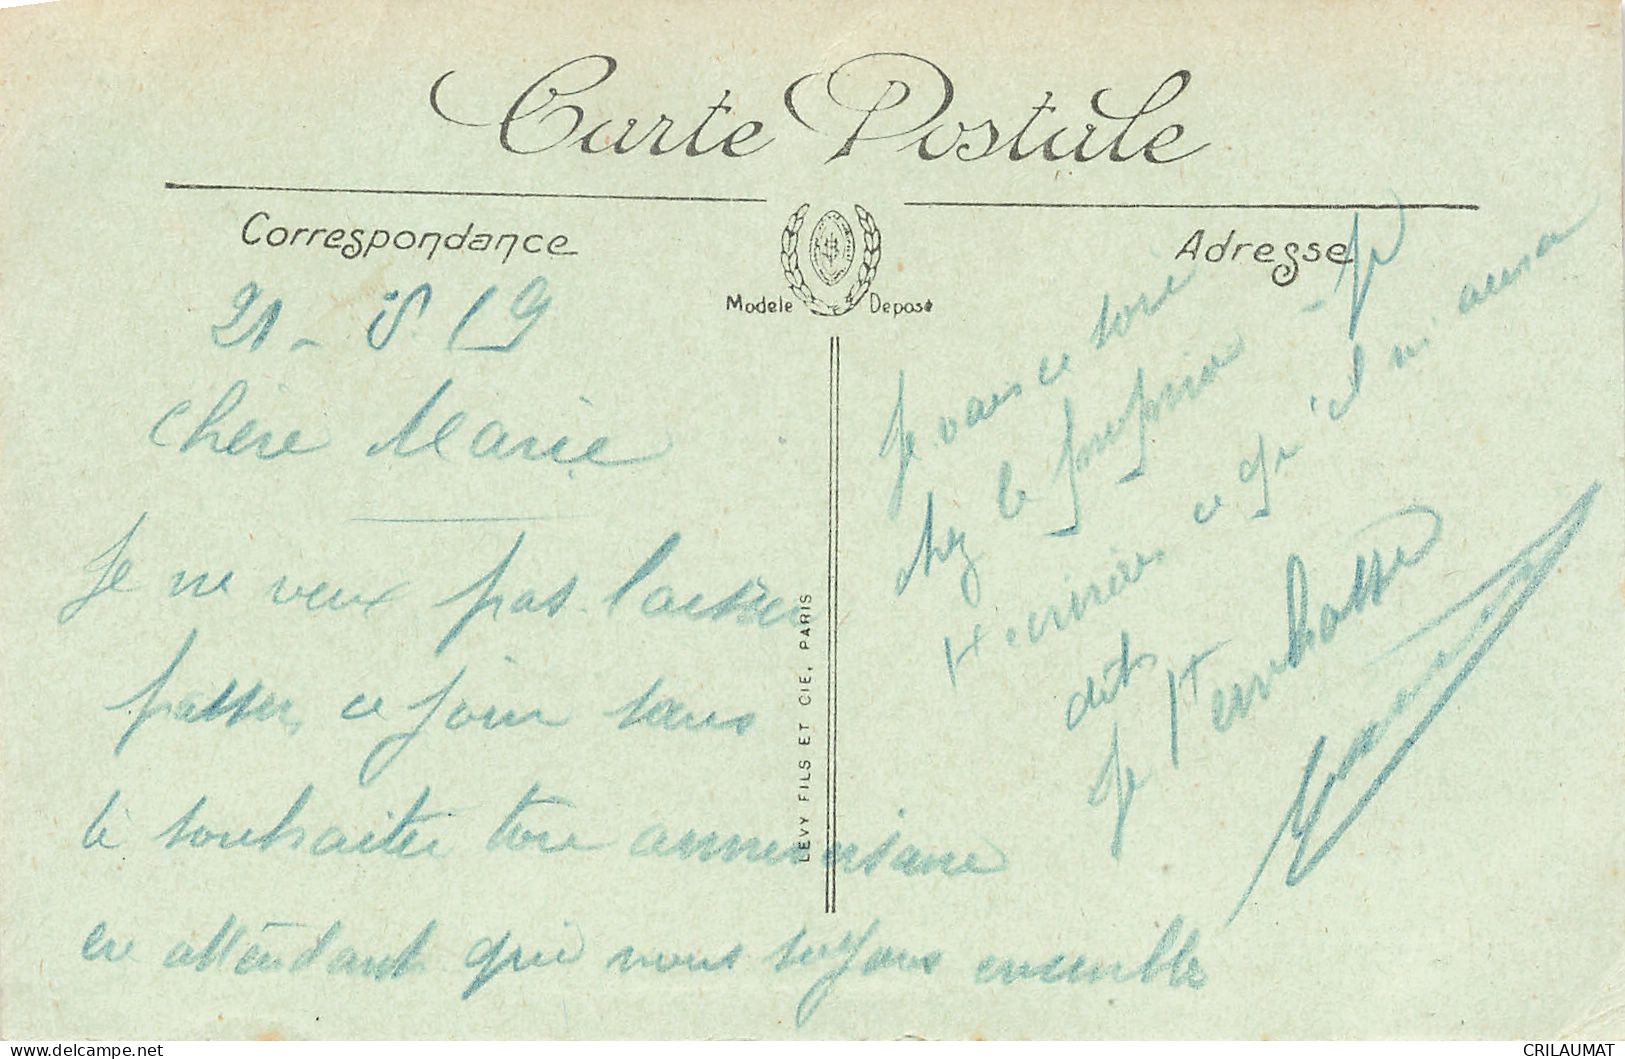 Carte Postale
Correspondance
Adresse
Modele Deposé
21 - 8. 19
Chère Marie
Je ne veux pas laisser
passer ce jour sans
te souhaiter ton anniversaire
en attendant que nous soyons ensemble
Je vais ce soir
chez le - Je
t'écrirai ce qu'il m'aura
dit
Je t'embrasse
LEVY FILS ET CIE, PARIS
CRILAUMAT